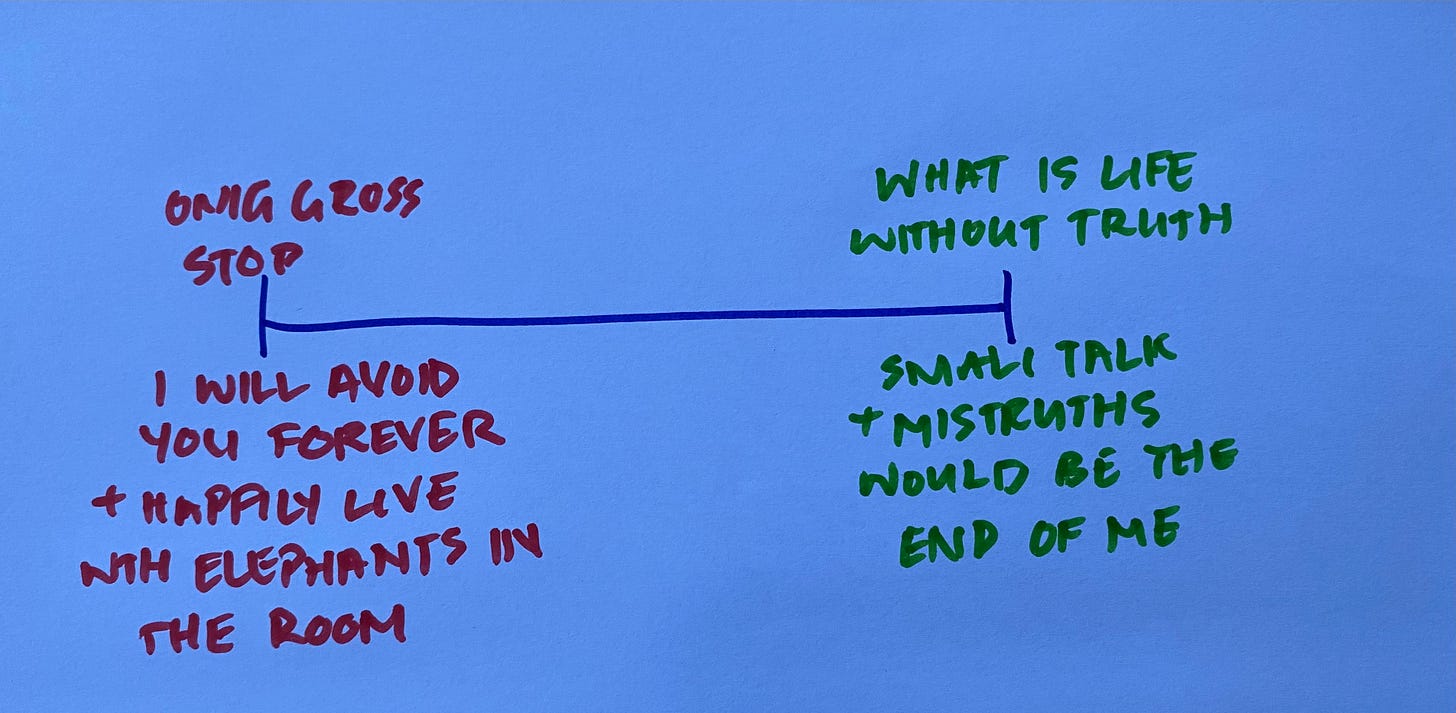 OMG GROSS
STOP
I WILL AVOID
YOU FOREVER
+ HAPPILY LIVE
WITH ELEPHANTS IN
THE ROOM
WHAT IS LIFE
WITHOUT TRUTH
SMALL TALK
+ MISTRUTHS
WOULD BE THE
END OF ME